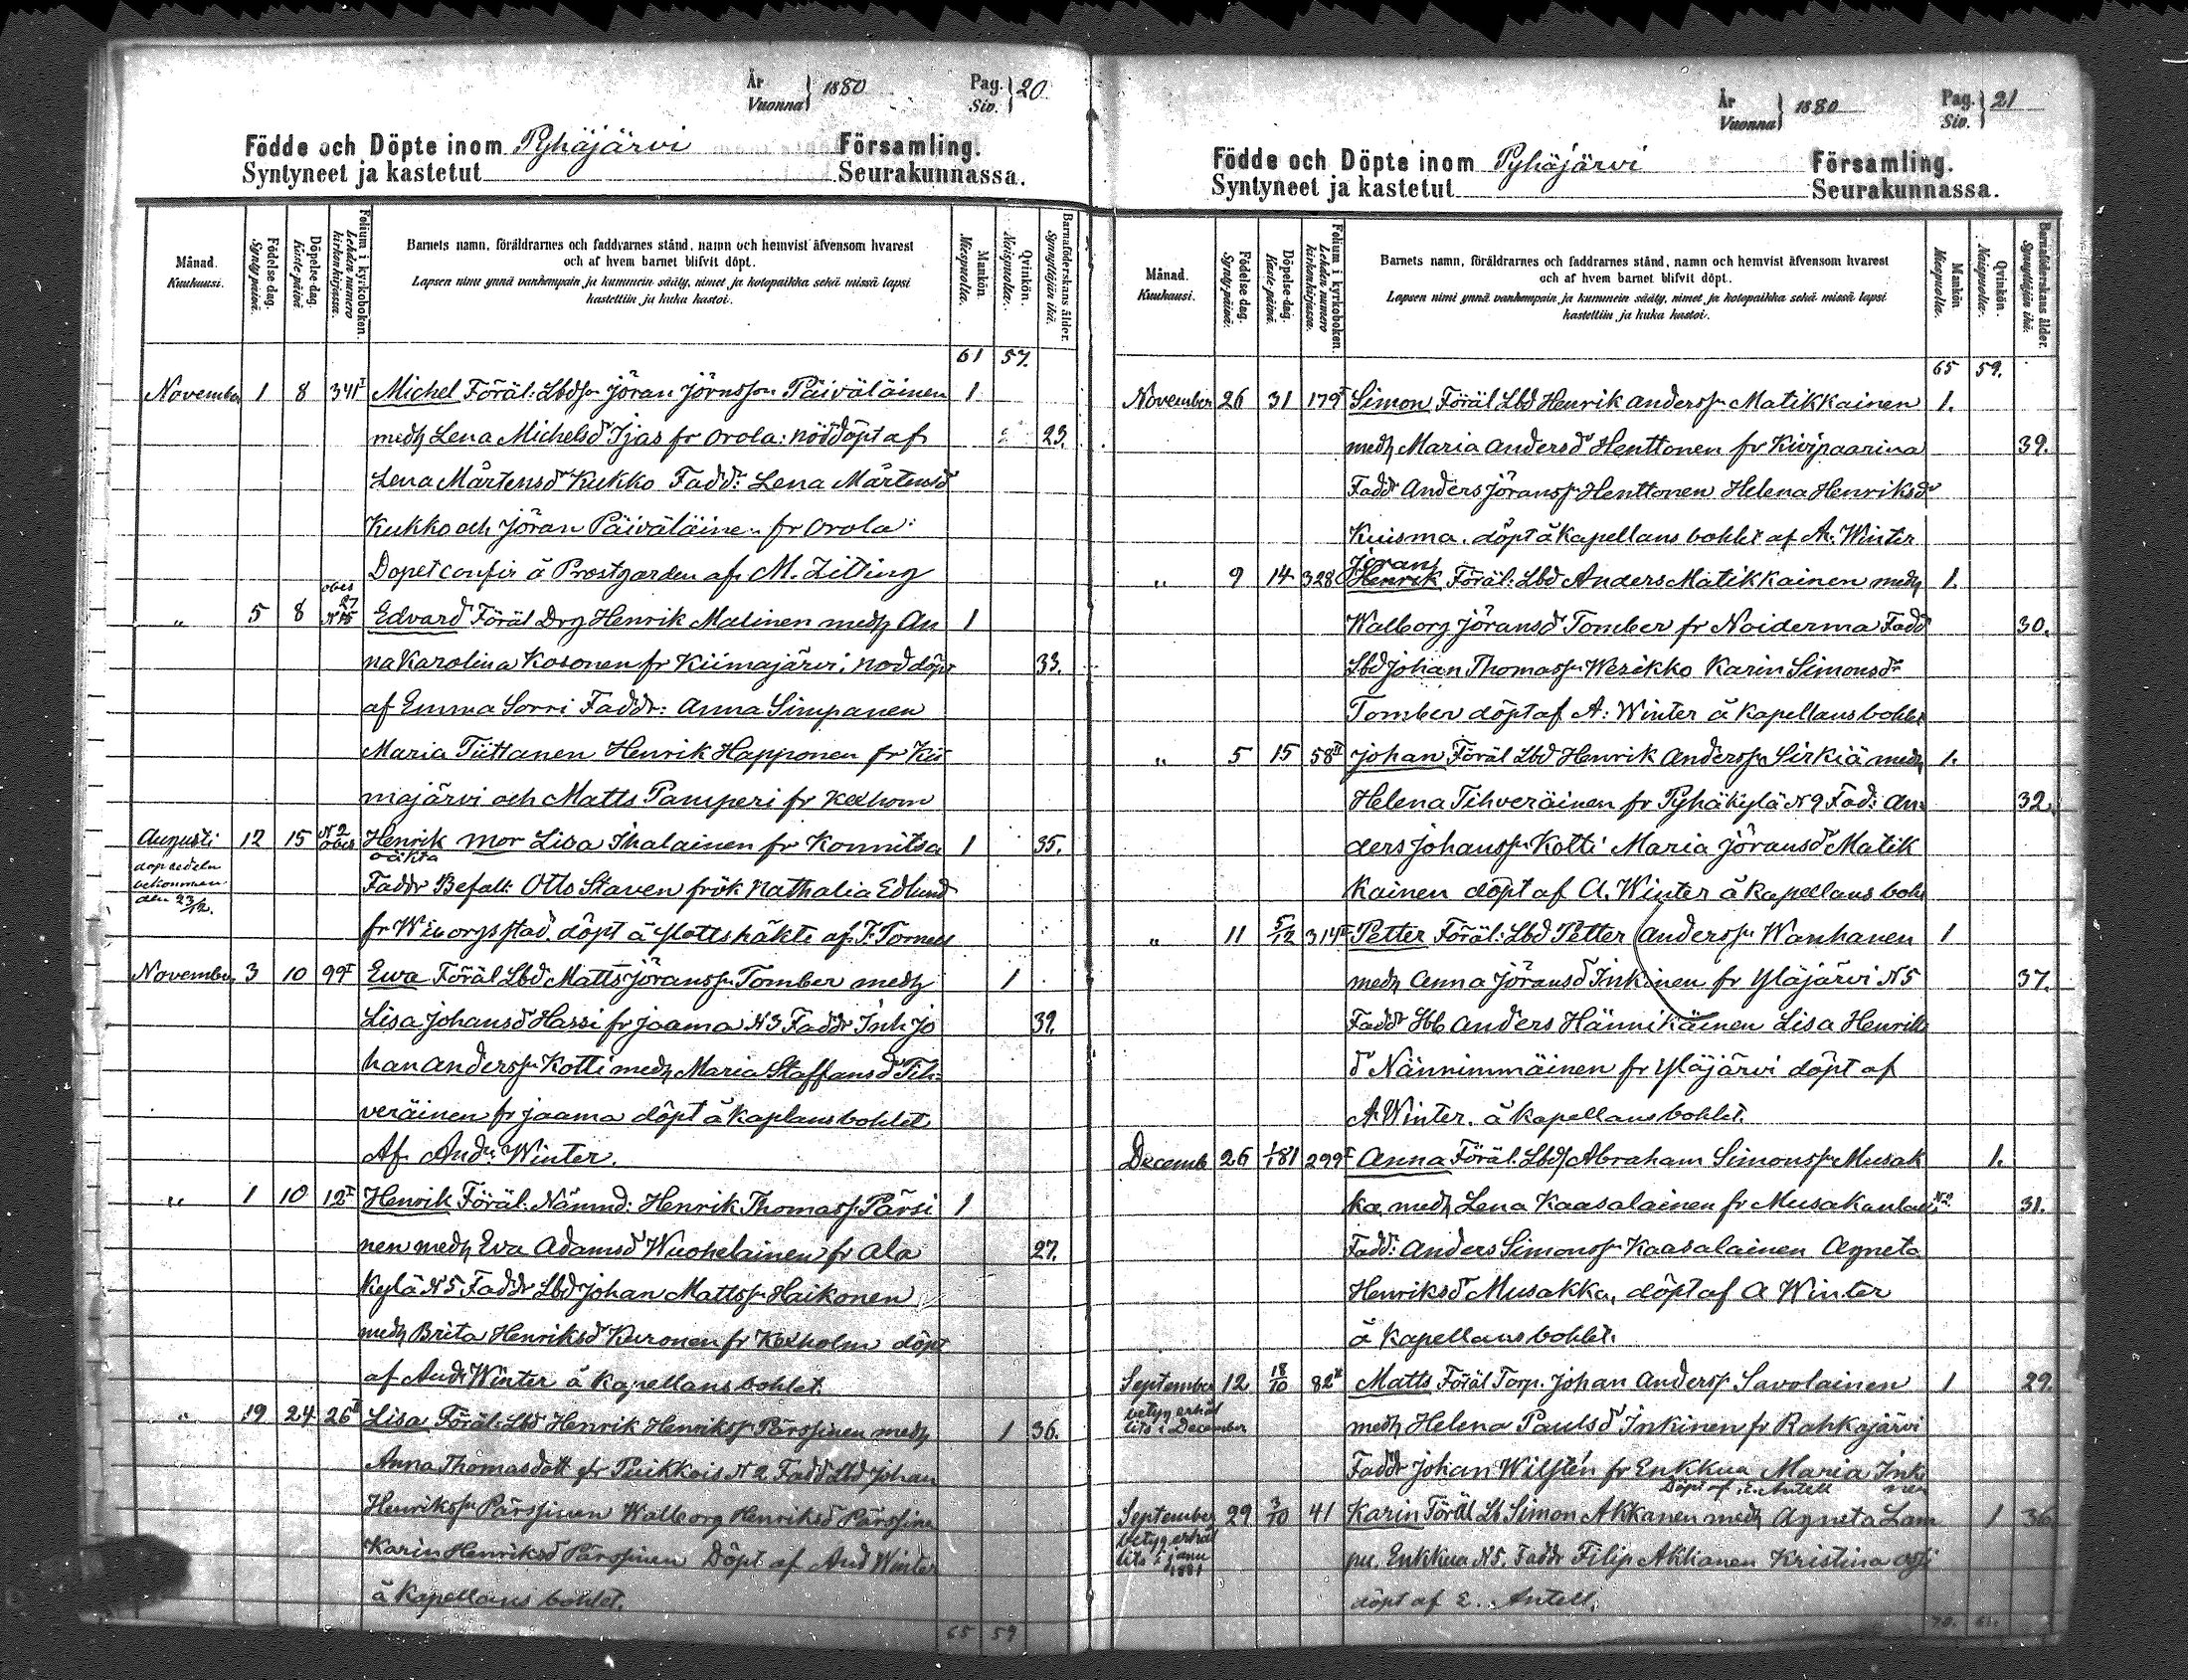 År
Vuonna 1880
Pag.
Siv. 20
Födde och Döpte inom Pyhäjärvi Församling.
Syntyneet ja kastetut Seurakunnassa.
Månad.
Kuukausi.
Födelse-dag.
Synty-päivä.
Döpelse-dag.
Kaste-päivä.
Folium i kyrkoboken.
Lehden numero kirkonkirjassa.
Barnets namn, föräldrarnes och faddrarnes stånd, namn och hemvist äfvensom hvarest
och af hvem barnet blifvit döpt.
Lapsen nimi ynnä vanhempain ja kummein sääty, nimet ja kotopaikka sekä missä lapsi
kastettiin ja kuka kastoi.
Mankön.
Miespuolia.
Qvinkön.
Naispuolia.
Barnaföderskans ålder.
Synnyttäjän ikä.
61 57.
November 1 8 341 I Michel Föräl: Lbdsn Jöran Jörnssn Päiväläinen 1
medh Lena Michelsd Ijas fr Orola: nöddöpt af 23.
Lena Mårtensd Kukko Fadd: Lena Mårtensd
Kukko och Jöran Päiväläinen fr Orola:
Dopet confir å Prostgården af M. Zitting
" 5 8 obes 27 N 15 Edvard Föräl Drg Henrik Malinen medh An 1
na Karolina Kosonen fr Kiimajärvi, nöddöpt 33.
af Emma Sorri Faddr: Anna Simpanen
Maria Tiittanen Henrik Happonen fr Kii
majärvi och Matts Pamperi fr Kexhom
Augusti 12 15 N 2 obes Henrik mor Lisa Ihalainen fr Konnitsa 1 35.
oäkta
dopsedeln
bekommen
den 23/12.
Faddr Befallt: Otto Staven frök Nathalia Edlund
fr Wiborgs stad. döpt å slottshäkte af F. Tornell
November 3 10 99 I Ewa Föräl Lbd Matts Jöranssn Tomber medh 1
Lisa Johansd Hassi fr Jaama N 3 Faddr Inh Jo 39.
han Anderssn Kotti medh Maria Staffansd Tih-
veräinen fr Jaama döpt å kaplansbohlet
Af Andr: Winter.
" 1 10 12 I Henrik Föräl: Nämnd: Henrik Thomassn Pärsi 1
nen medh Eva Adamsd Wuohelainen fr Ala 27.
kylä N 5 Faddr Lbd Johan Mattssn Haikonen
medh Brita Henriksd Kuronen fr Kexholm döpt
af Andr Winter å Kapellansbohlet.
" 19 24 26 I Lisa Föräl: Lbd Henrik Henrikssn Pärssinen medh 1 36.
Anna Thomasdott fr Puikkois N 2 Fadd Lbd Johan
Henrikssn Pärssinen Walborg Henriksd Pärssine
Karin Henriksd Pärssinen Döpt af And Winter
å Kapellans bohlet.
65 59
År
Vuonna 1880
Pag.
Siv. 21
Födde och Döpte inom Pyhäjärvi Församling.
Syntyneet ja kastetut Seurakunnassa.
Månad.
Kuukausi.
Födelse dag.
Synty-päivä.
Döpelse-dag.
Kaste-päivä.
Folium i kyrkoboken.
Lehden numero kirkonkirjassa.
Barnets namn, föräldrarnes och faddrarnes stånd, namn och hemvist äfvensom hvarest
och af hvem barnet blifvit döpt.
Lapsen nimi ynnä vanhempain ja kummein sääty, nimet ja kotopaikka sekä missä lapsi
kastettiin ja kuka kastoi.
Mankön
Miespuolia.
Qvinkön.
Naispuolia.
Barnaföderskans ålder.
Synnyttäjän ikä.
65 59.
November 26 31 179 I Simon Föräl Lbd Henrik Anderssn Matikkainen 1.
medh Maria Andersd Henttonen fr Kivipaarina 39.
Fadd Anders Jöranssn Henttonen Helena Henriksd
Kuisma. döpt å kapellans bohlet af A. Winter
Jöran
" 9 14 328 Henrik Föräl: Lbd Anders Matikkainen medh 1.
Walborg Jöransd Tomber fr Noiderma Fadd 30.
Lbd Johan Thomassn Wesikko Karin Simonsd
Tomber döpt af A: Winter å kapellansbohlet
" 5 15 58 II Johan Föräl Lbd Henrik Anderssn Sirkiä medh 1.
Helena Tihveräinen fr Pyhäkylä N 9 Fad: An- 32.
ders Johanssn Kotti Maria Jöransd Matik
kainen döpt af A. Winter å Kapellans bohl
" 11 5/12 314 I Petter Föräl: Lbd Petter Anderssn Wanhanen 1
medh Anna Jöransd Inkinen fr Yläjärvi N 5 37.
Faddr Lbd Anders Hännikäinen Lisa Henriks
d Nännimmäinen fr Yläjärvi döpt af
A. Winter. å kapellansbohlet.
Decemb 26 1/1 81 299 I Anna Föräl: Lbd Abraham Simonssn Musak 1.
ka medh Lena Kaasalainen fr Musakanlaks N 2 31.
Fadd: Anders Simonssn Kaasalainen Agneta
Henriksd Musakka, döpt af A Winter
å Kapellansbohlet.
September 12 18/10 82 II Matts Föräl Torp. Johan Anderss Savolainen 1 29.
betyg erhål
lits i December
medh Helena Paulsd Inkinen fr Rahkajärvi
Faddr Johan Wilstén fr Enkkua Maria Inki
nen
Döpt af E. Antell
September 29 3/10 41 Karin Föräl Lb Simon Akkanen medh Agneta Lam 1 36
betyg erhål
lits i janu
1881
pu. Enkkua N 5. Faddr Filip Akkanen Kristina
döpt af E. Antell.